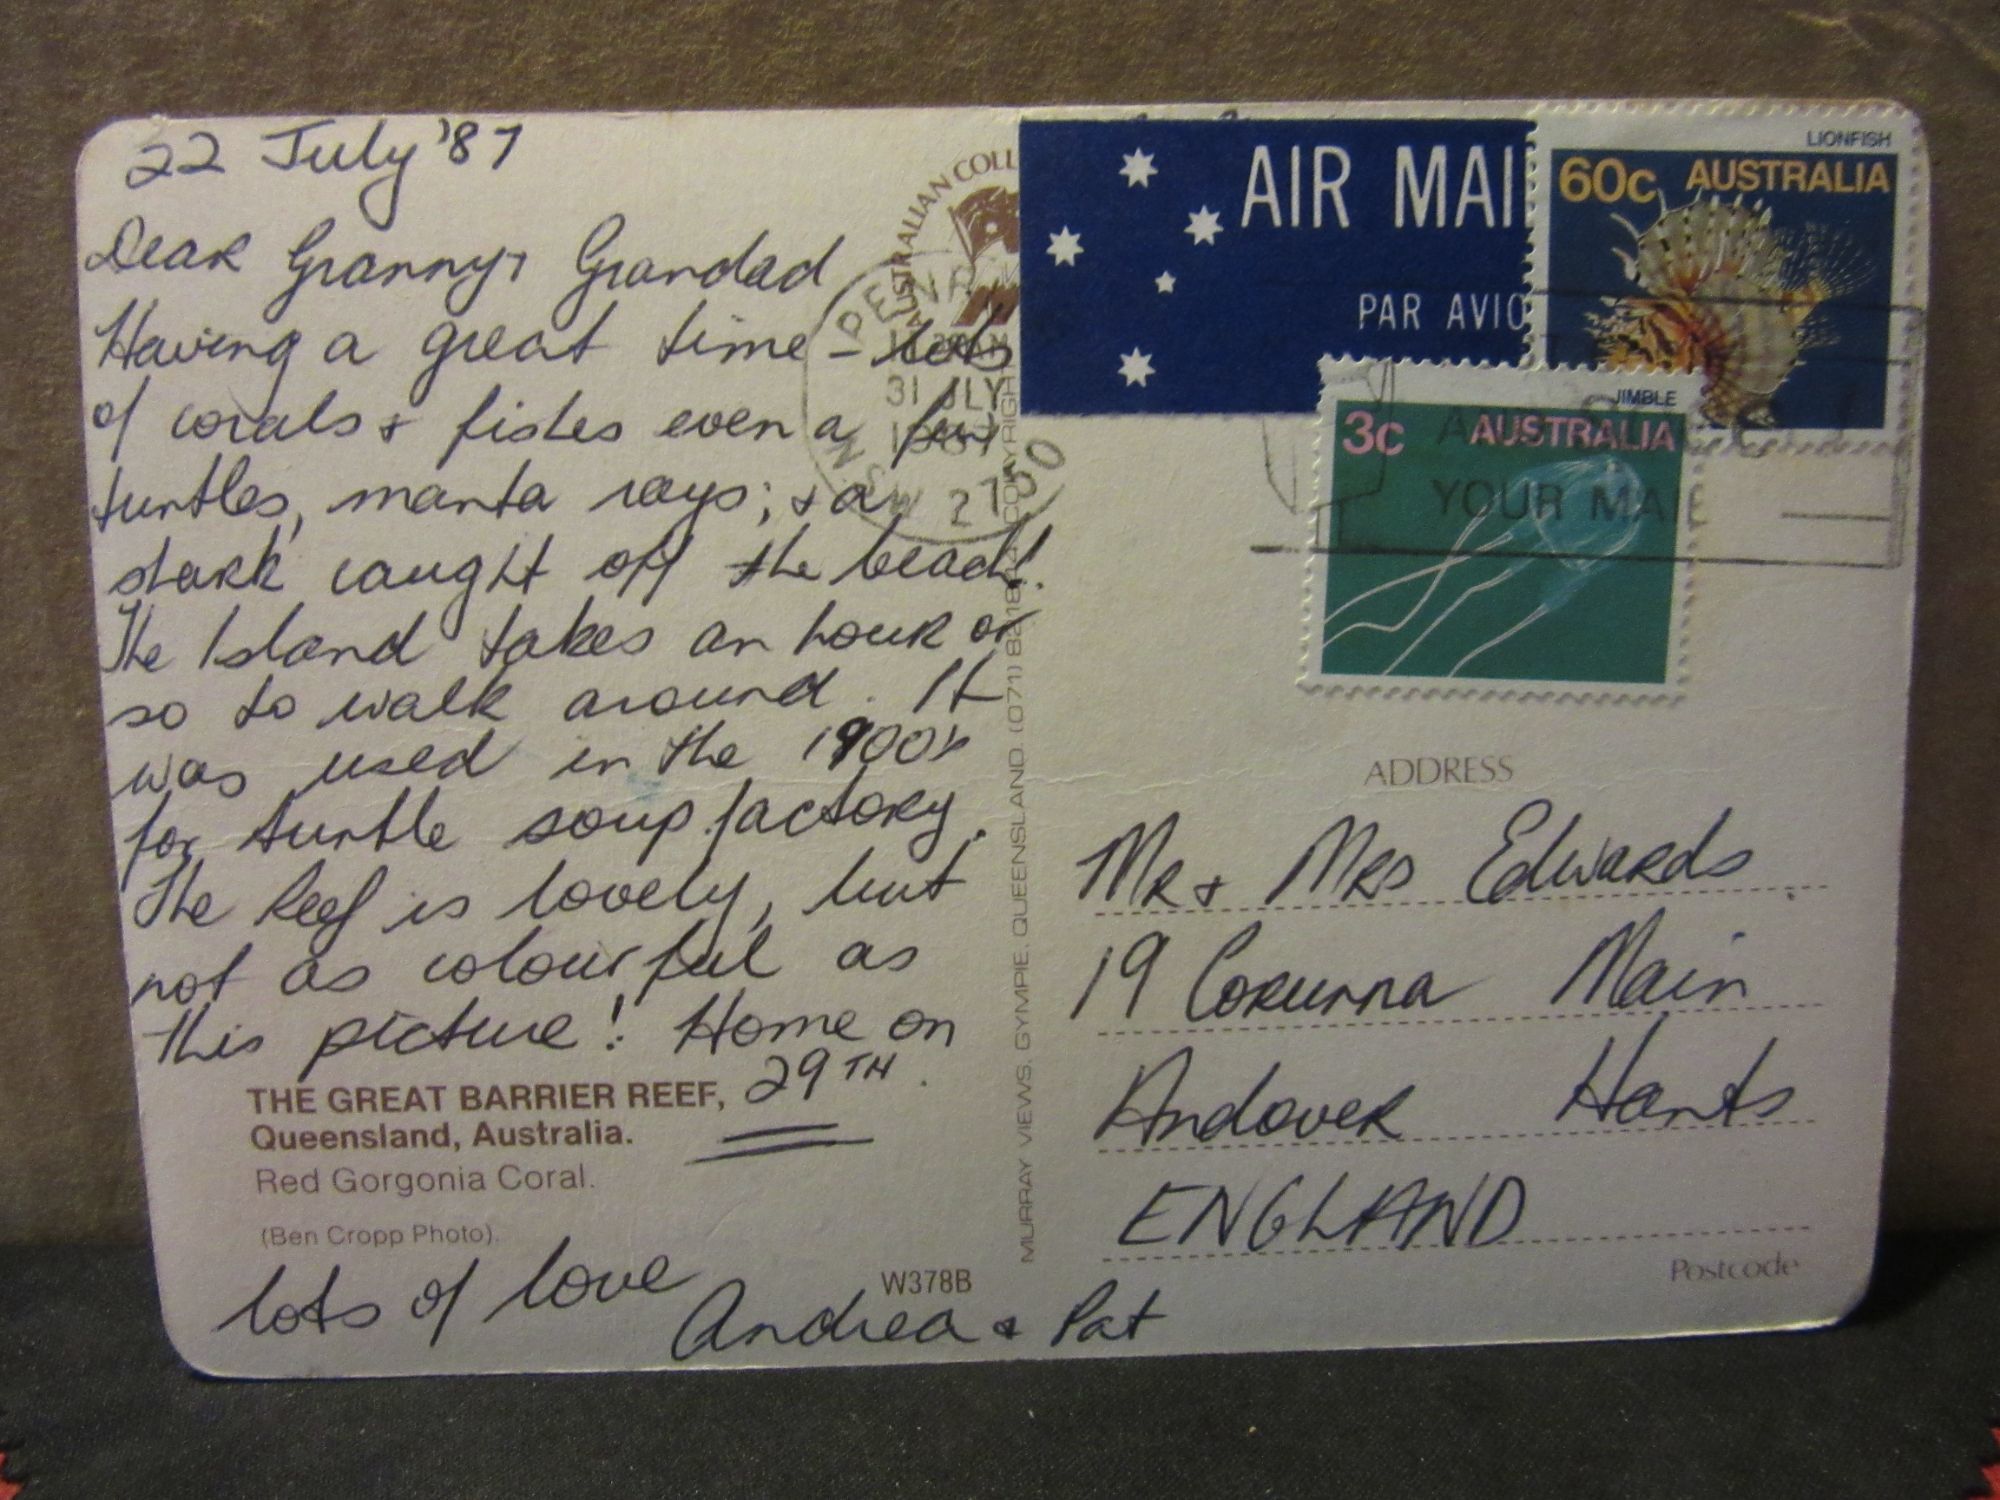 22 July '87
Dear Granny, Grandad
Having a great time - lots
of corals & fishes even a few
turtles, manta rays; & a
shark caught off the beach!
The Island takes an hour or
so to walk around. It
was used in the 1900's
for turtle soup factory.
The Reef is lovely, but
not as colourful as
this picture! Home on
29TH.
THE GREAT BARRIER REEF,
Queensland, Australia.
Red Gorgonia Coral.
(Ben Cropp Photo).
lots of love
Andrea & Pat
W378B
AUSTRALIAN
PENR
31 JLY
1987
NSW 2750
MURRAY VIEWS. GYMPIE. QUEENSLAND. (071)
COPYRIGHT
AIR MAI
PAR AVIO
LIONFISH
60c AUSTRALIA
JIMBLE
3c AUSTRALIA
YOUR MAI
ADDRESS
Mr & Mrs Edwards
19 Corunna Main
Andover Hants
ENGLAND
Postcode